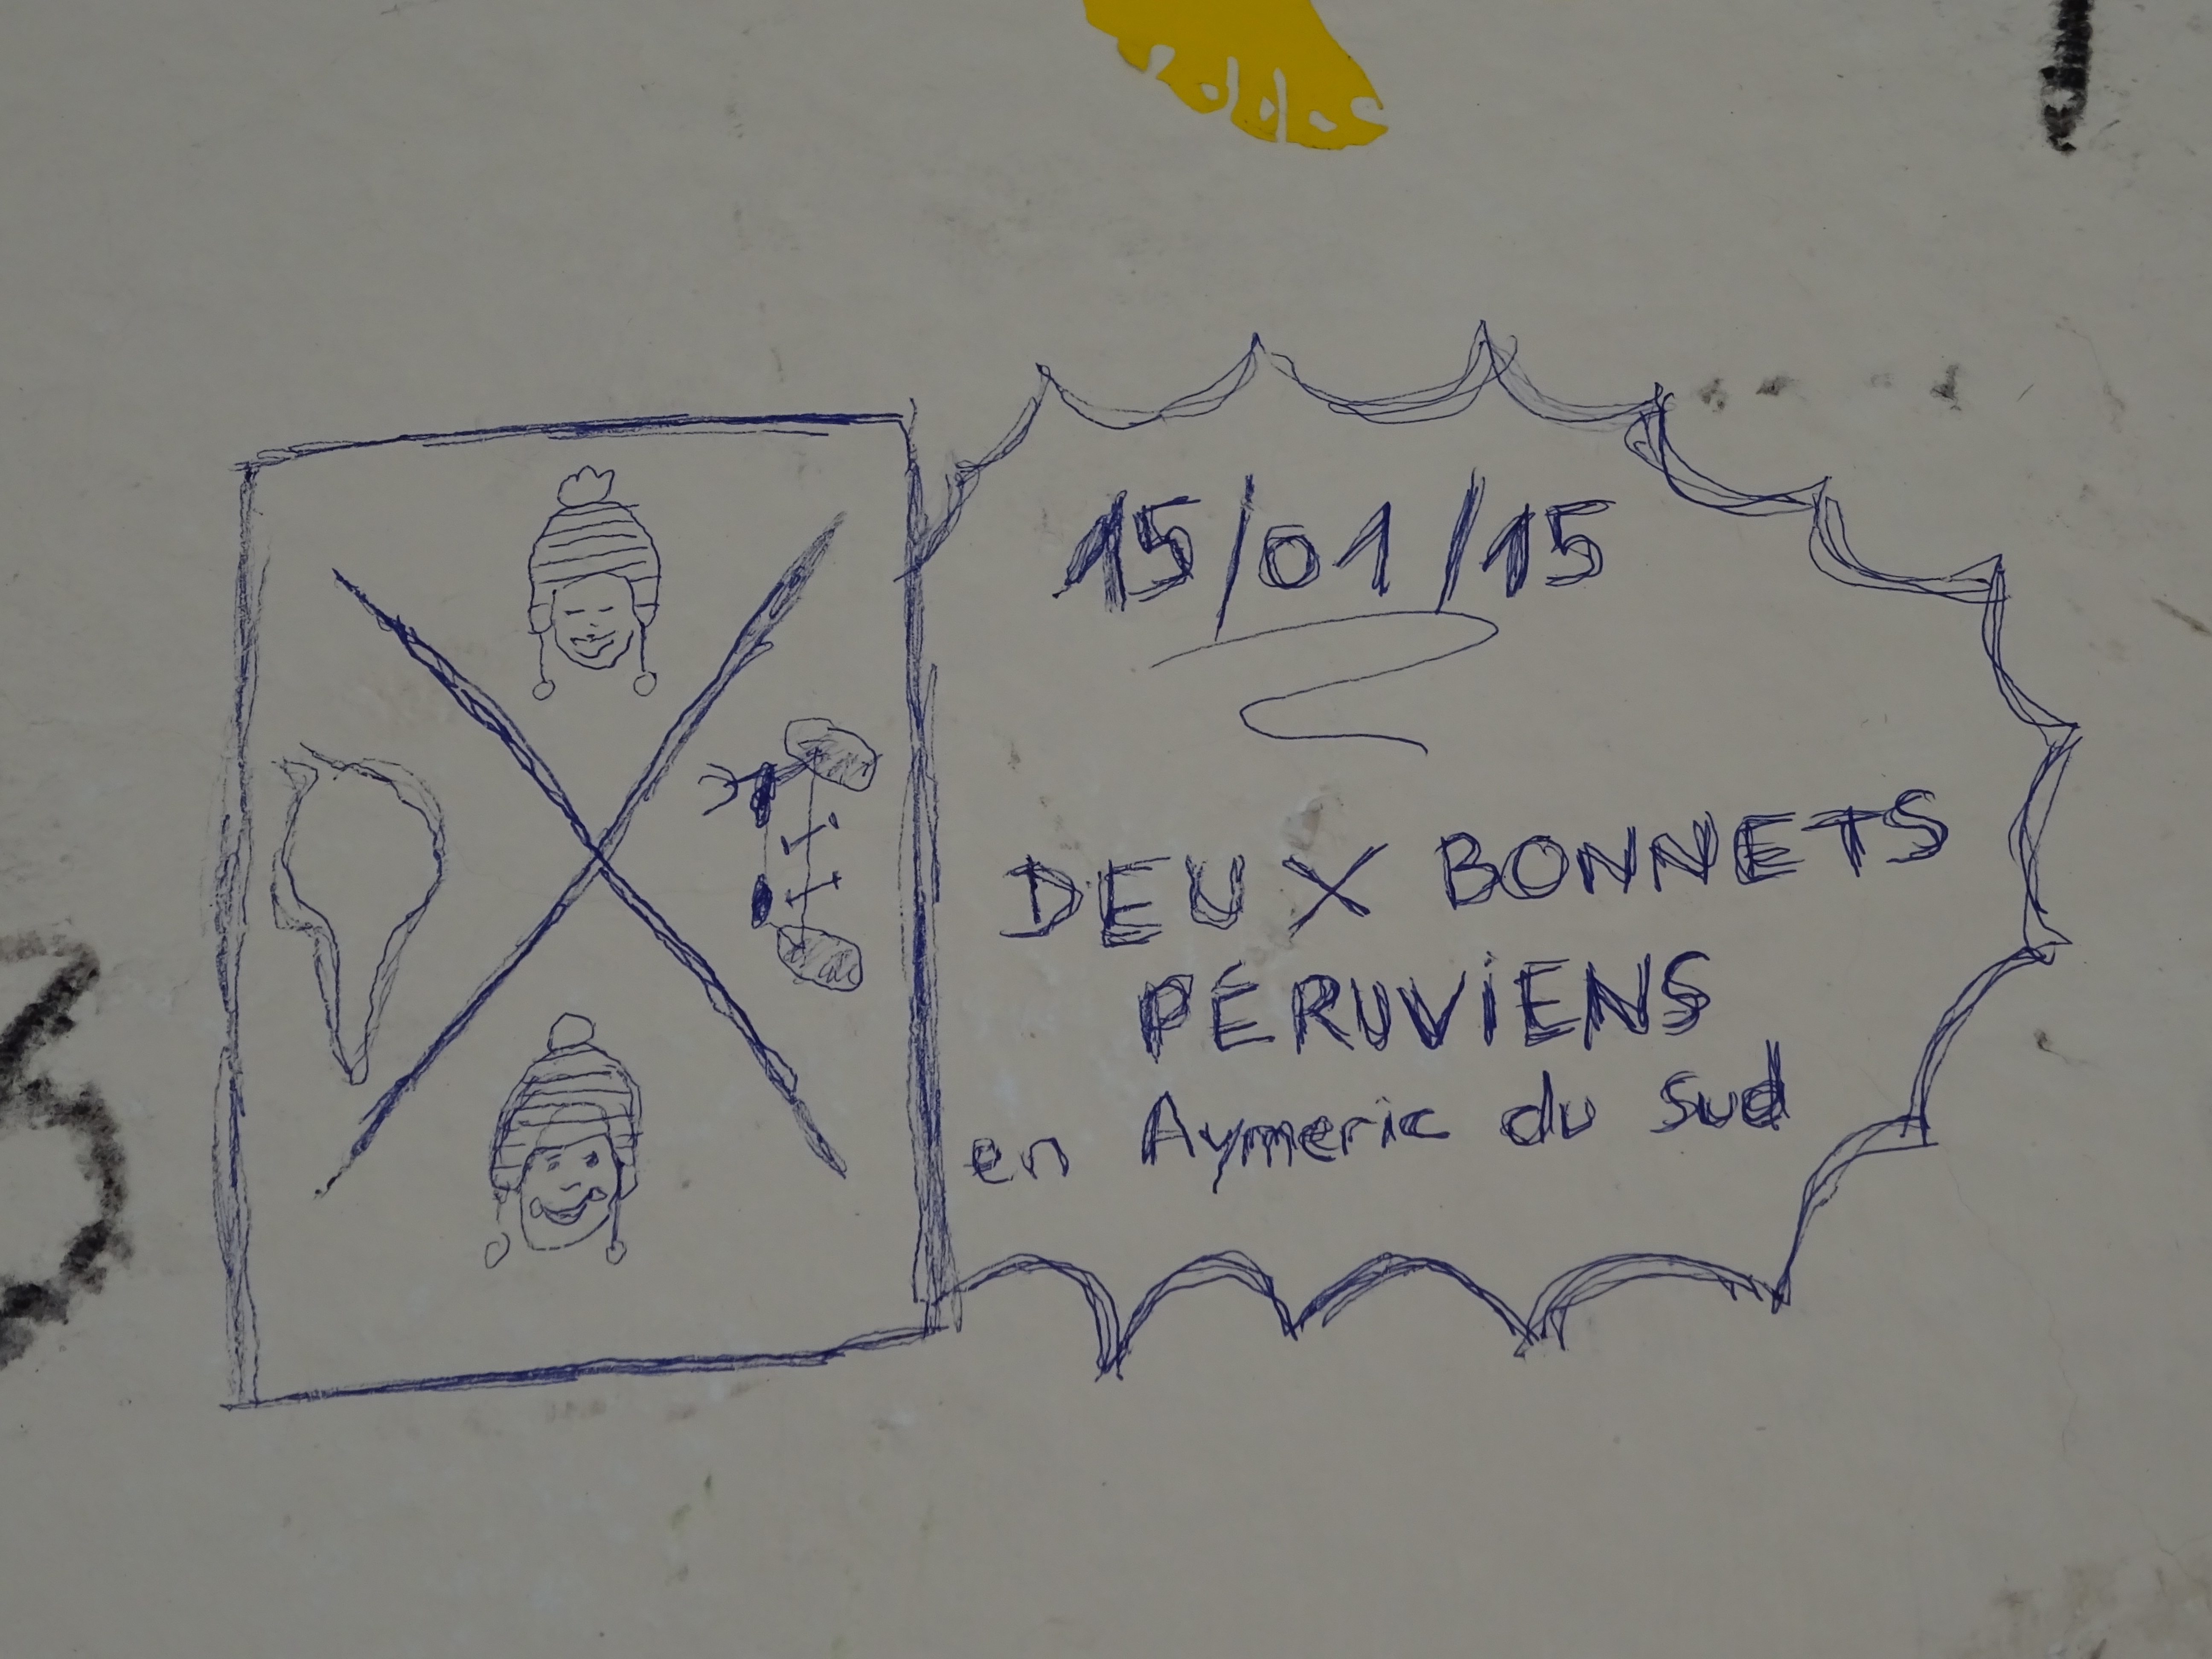 15/01/15
DEUX BONNETS
PÉRUVIENS
en Aymeric du sud